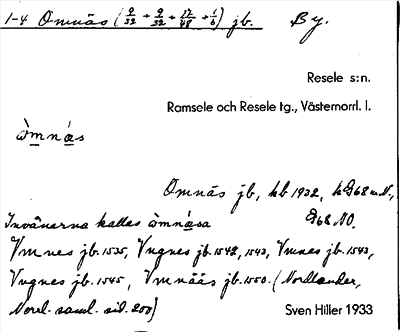 1-4 Omnäs (9/32 + 9/32 + 17/48 + 1/6) jb. By.
Resele s:n.
Ramsele och Resele tg., Västernorrl. l.
òmnás
Omnäs jb, kb 1932, k G68 NV.,
Invånarna kallas òmnása G68 NO.
Vmnes jb. 1535, Vngnes jb. 1542, 1543, Vmnes jb. 1543,
Vngnes jb. 1545, Vmnääs jb. 1550. (Nordlander,
Norrl. saml. sid. 200)
Sven Hiller 1933